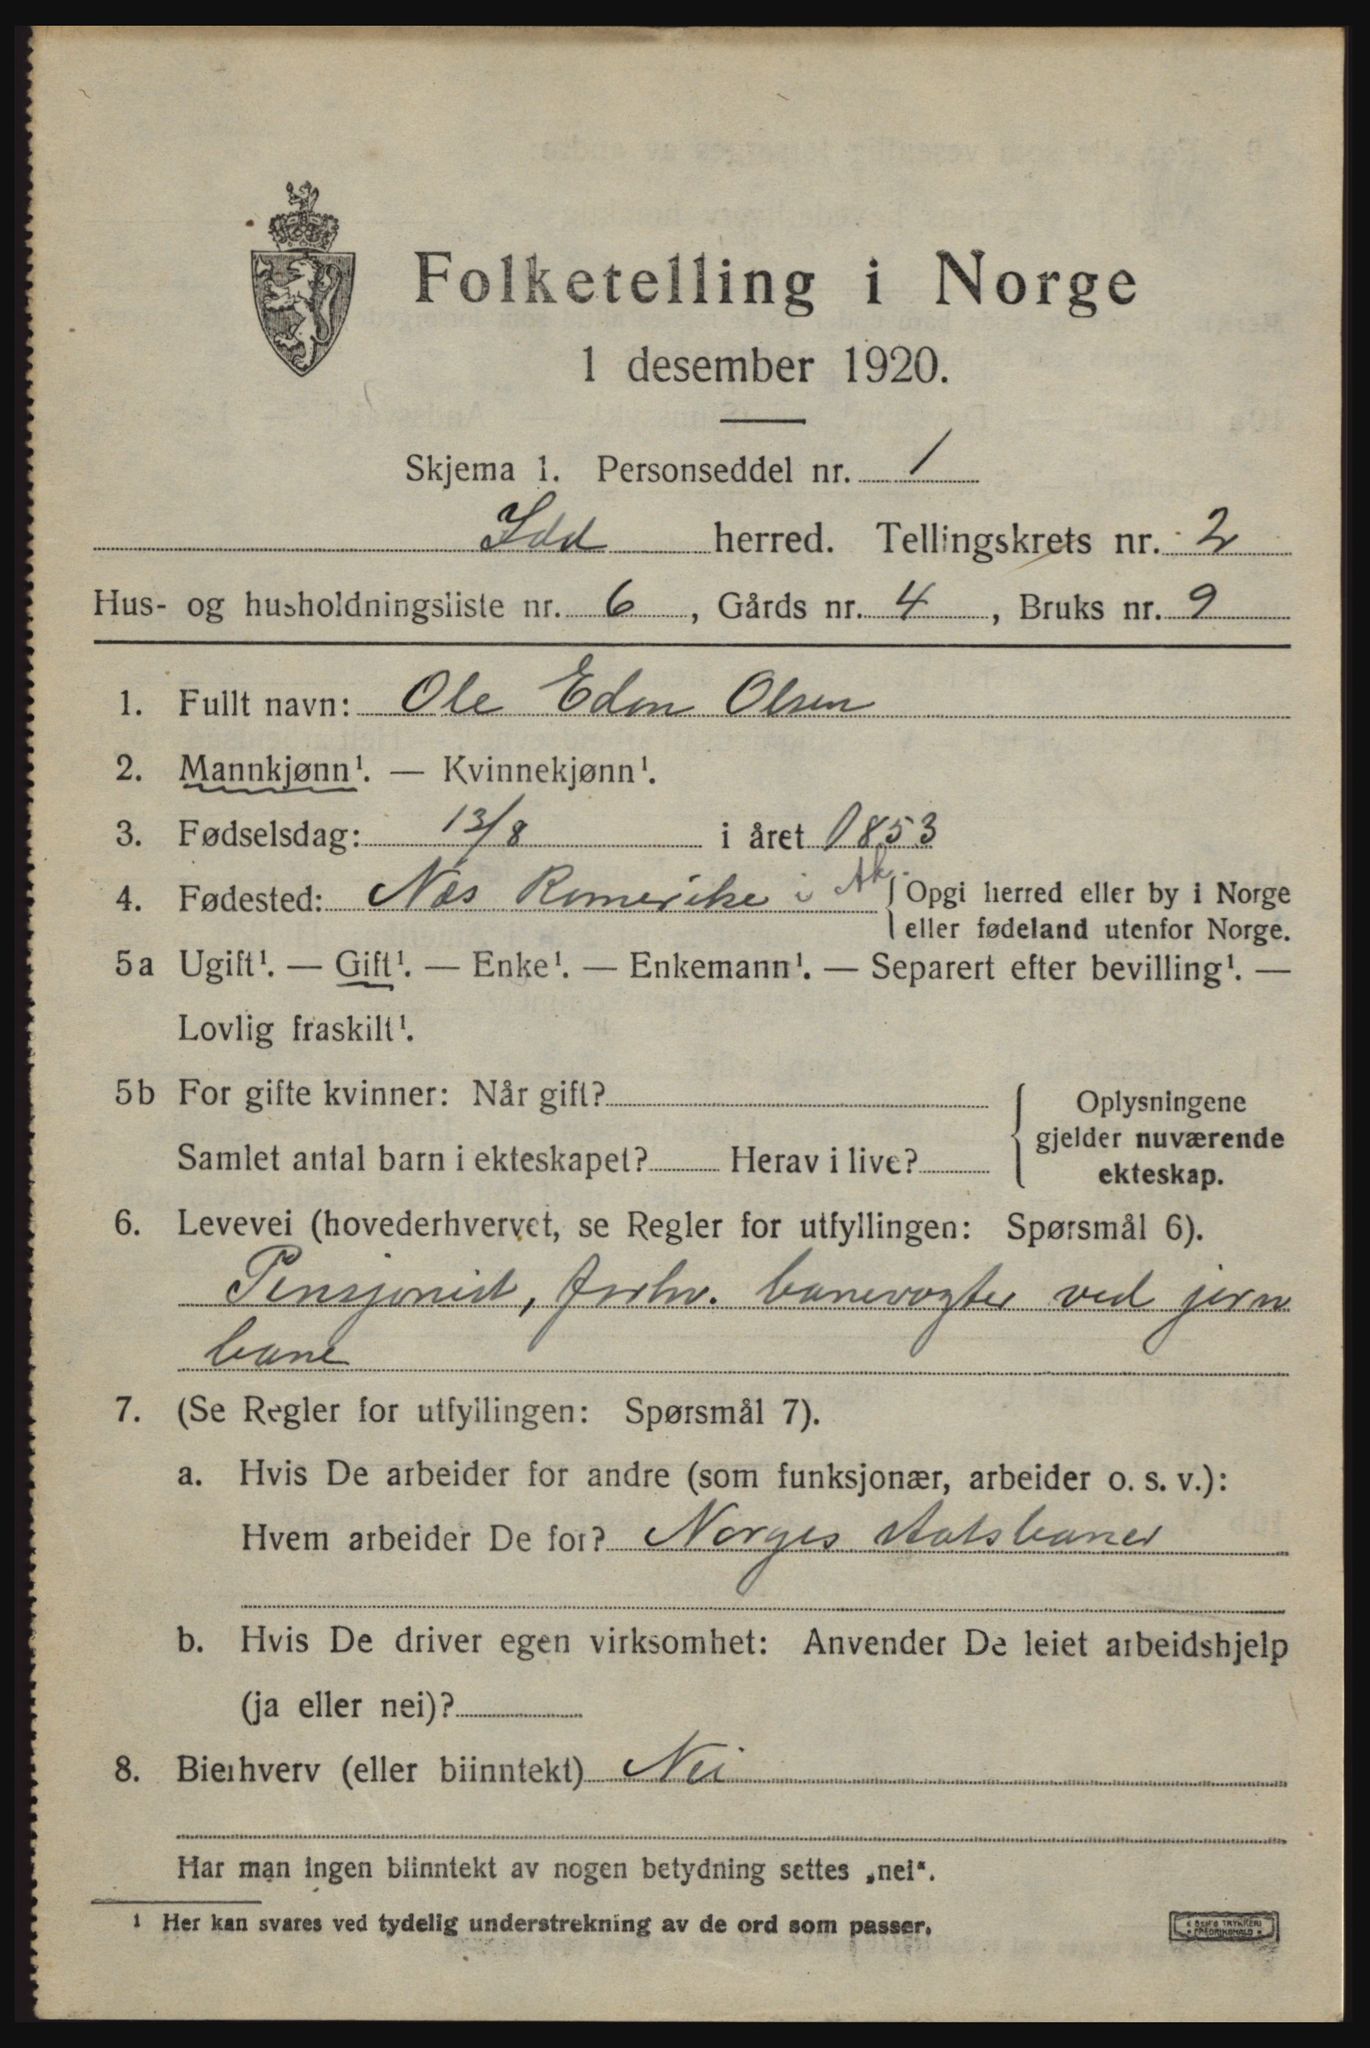 Folketelling i Norge
1 desember 1920.
Skjema 1. Personseddel nr. 1
Idd herred. Tellingskrets nr. 2
Hus- og husholdningsliste nr. 6, Gårds nr. 4, Bruks nr. 9
1. Fullt navn: Ole Edon Olsen
2. Mannkjønn¹. — Kvinnekjønn¹.
3. Fødselsdag: 13/8 i året 1853
4. Fødested: Næs Romerike i Ak. { Opgi herred eller by i Norge
eller fødeland utenfor Norge.
5a Ugift¹. — Gift¹. — Enke¹. — Enkemann¹. — Separert efter bevilling¹. —
Lovlig fraskilt¹.
5b For gifte kvinner: Når gift?
Samlet antal barn i ekteskapet? Herav i live?
{ Oplysningene
gjelder nuværende
ekteskap.
6. Levevei (hovederhvervet, se Regler for utfyllingen: Spørsmål 6).
Pensjonist, forhv. banevogter ved jern
bane
7. (Se Regler for utfyllingen: Spørsmål 7).
a. Hvis De arbeider for andre (som funksjonær, arbeider o. s. v.):
Hvem arbeider De for? Norges statsbaner
b. Hvis De driver egen virksomhet: Anvender De leiet arbeidshjelp
(ja eller nei)?
8. Bierhverv (eller biinntekt) Nei
Har man ingen biinntekt av nogen betydning settes „nei“.
1 Her kan svares ved tydelig understrekning av de ord som passer.
TRYKKERI
FREDRIKSHALD